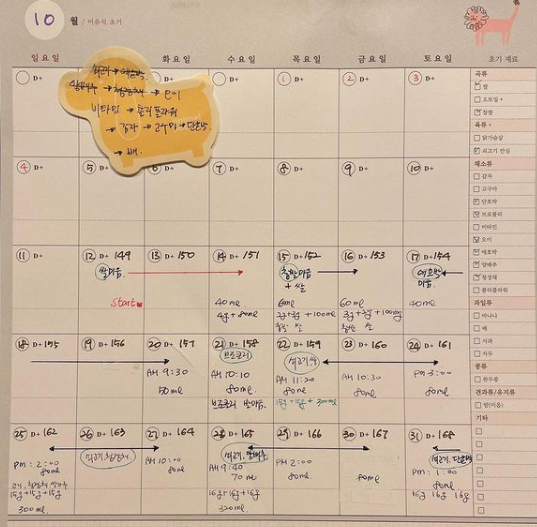 10 월 / 이유식 초기
일요일 화요일 수요일 목요일 금요일 토요일 초기 재료
D+ D+ ① D+ ② D+ ③ D+
비타민 → 콜리플라워
→ 배.
④ D+ ⑤ D+ D+ ⑦ D+ ⑧ D+ ⑨ D+ ⑩ D+
⑪ D+ ⑫ D+ 149 ⑬ D+ 150 ⑭ D+ 151 ⑮ D+ 152 ⑯ D+ 153 ⑰ D+ 154
쌀미음 찹쌀미음 애호박
+ 쌀 미음.
start
40ml 60ml 60ml 40ml
4g + 80ml
⑱ D+ 155 ⑲ D+ 156 ⑳ D+ 157 ㉑ D+ 158 ㉒ D+ 159 ㉓ D+ 160 ㉔ D+ 161
브로콜리
AM 9:30 AM 10:10 AM 11:20 AM 10:30 PM 3:00
50ml 80ml. 80ml 80ml 80ml
브로콜리 쌀미음.
㉕ D+ 162 ㉖ D+ 163 ㉗ D+ 164 ㉘ D+ 165 ㉙ D+ 166 ㉚ D+ 167 ㉛ D+ 168
PM: 2:00 AM 10:00 AM 9:40 PM 2:00 PM: 1:00
80ml 80ml 70ml 80ml 80ml 80ml
15g+15g+15g 16g+16g+16g 16g 16g 16g
300ml 320ml
곡류
쌀
오트밀
찹쌀
육류
닭가슴살
쇠고기 안심
채소류
감자
고구마
단호박
브로콜리
비타민
오이
애호박
양배추
청경채
콜리플라워
과일류
바나나
배
사과
자두
콩류
완두콩
견과류/유지류
밤(미음)
기타